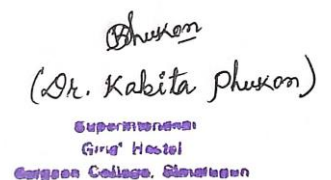 Bhuskon
(Dr. Kabita Phukon)
Superintendent
Girls' Hostel
Gargaon College, Simaluguri